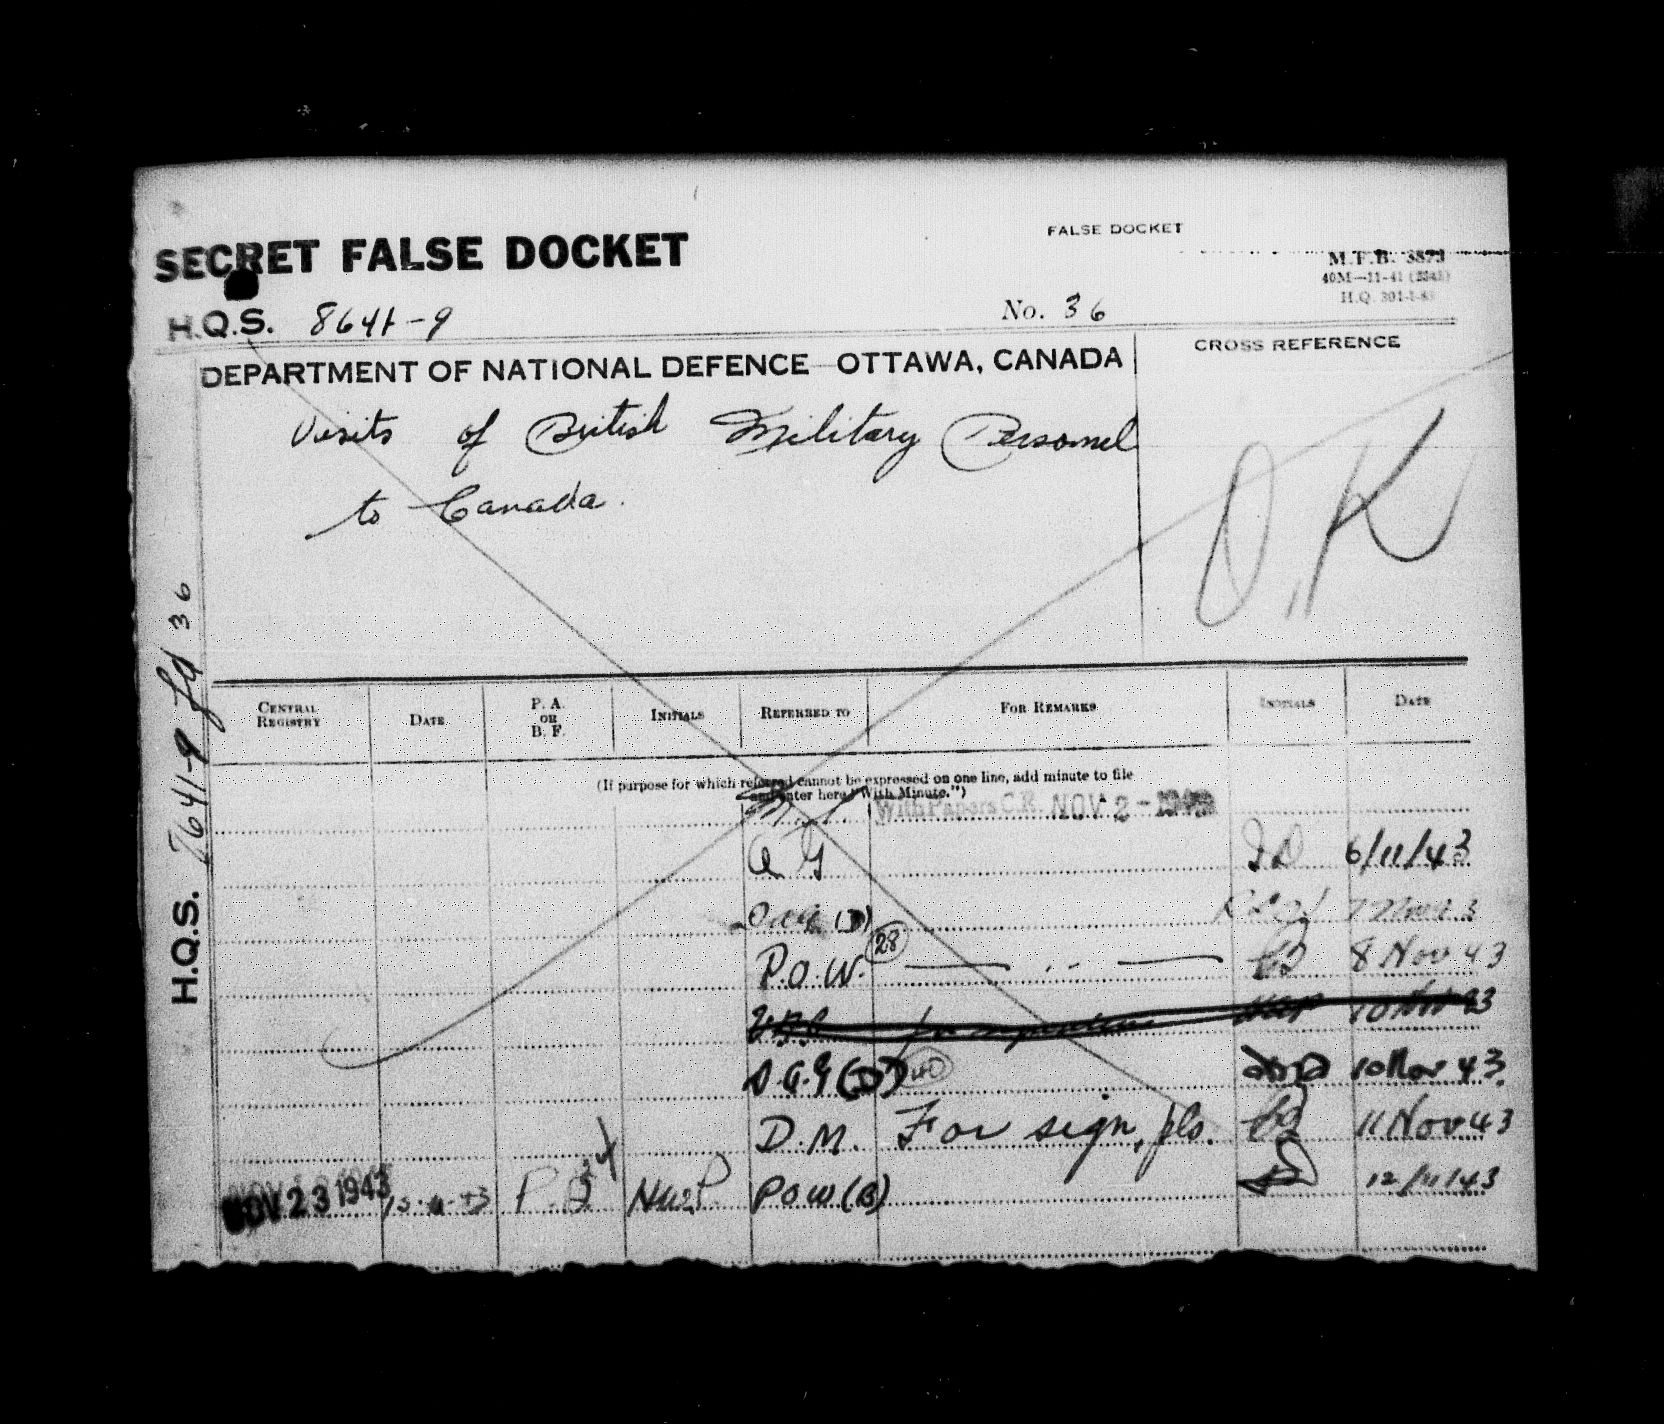 FALSE DOCKET
SECRET FALSE DOCKET
M.F.B. 3873
40M—11-41
H.Q. 301-1-83
H.Q.S. 8641-9 No. 36
DEPARTMENT OF NATIONAL DEFENCE OTTAWA, CANADA
CROSS REFERENCE
Visits of British Military Personnel
to Canada.
O.K
H.Q.S. 7641-9 fd 36
CENTRAL REGISTRY DATE P. A. OR B. F. INITIALS REFERRED TO FOR REMARKS INITIALS DATE
(If purpose for which referred cannot be expressed on one line, add minute to file
and enter here "With Minute.")
With Papers C.R. NOV 2 - 1943
A G 6/11/43
P.O.W. 28 8 Nov 43
10 Nov 43
D.A.G (D) 40 10 Nov 43
D.M. For sign, pls. 11 Nov 43
NOV 23 1943 P.A. POW (B) 12/11/43